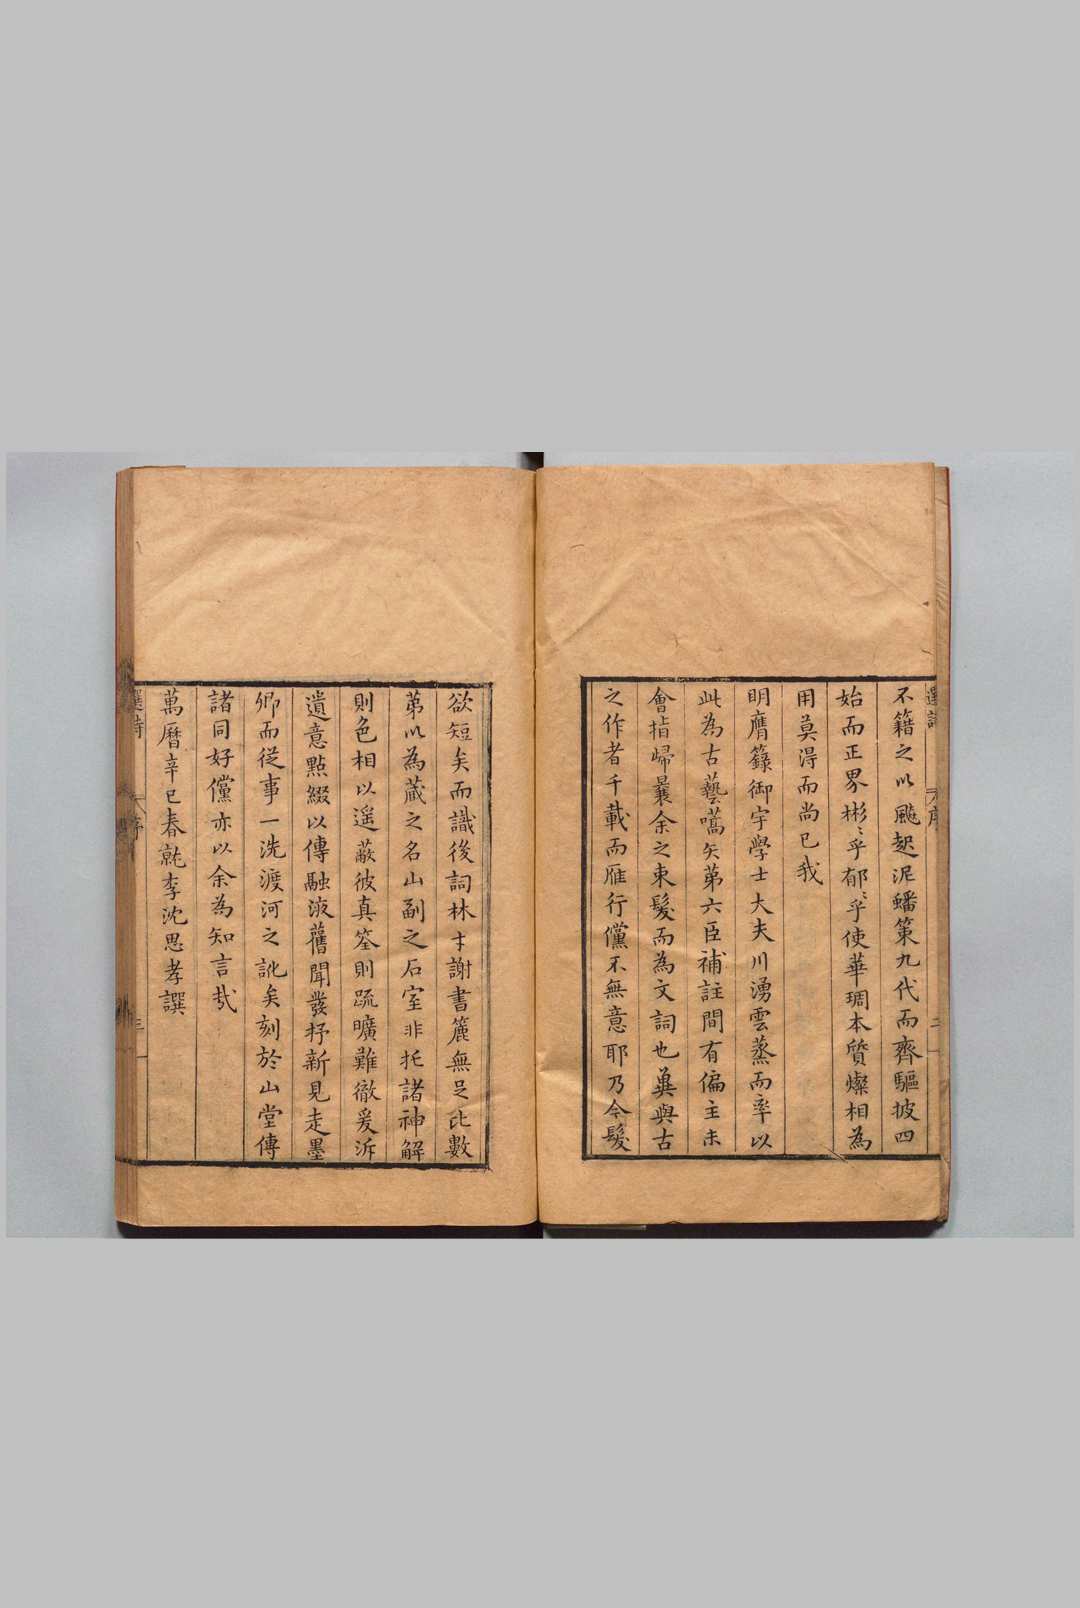 不籍之以颷起泥蟠策九代而齊驅披四
始而正界彬〻乎郁〻乎使華琱本質燦相為
用莫淂而尚已我
明膺籙御宇學士大夫川湧雲蒸而率以
此為古藝嚆矢苐六臣補註間有偏主未
會指歸曩余之束髮而為文詞也冀與古
之作者千載而雁行儻不無意耶乃今髮
選詩
序
二
欲短矣而識後詞林才謝書簏無足比數
苐以為蔵之名山副之石室非托諸神解
則色相以遥蔽彼真筌則䟽曠難徹爰泝
遺意點綴以傳融液舊聞發抒新見走墨
卿而從事一洗渡河之訛矣刻於山堂傳
諸同好儻亦以余為知言㦲
萬曆辛巳春檇李沈思孝譔
選詩
序
三